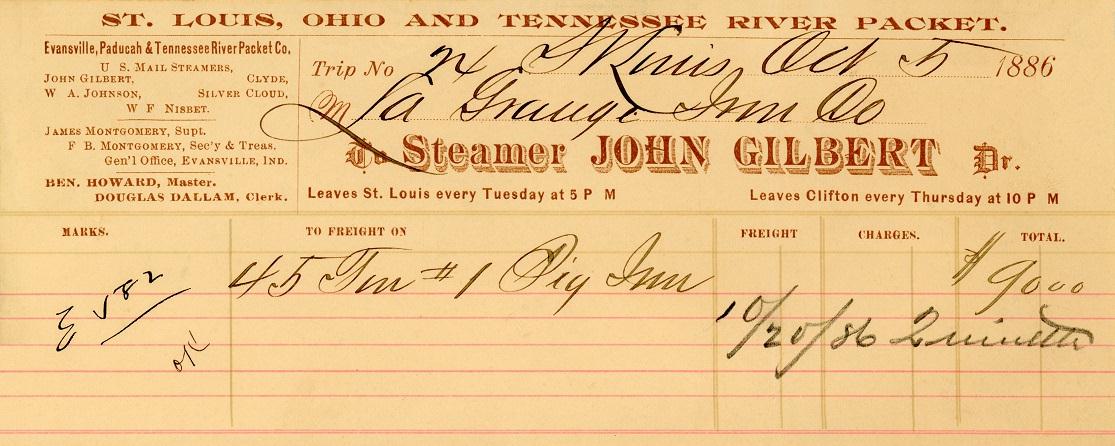 ST. LOUIS, OHIO AND TENNESSEE RIVER PACKET.
Evansville, Paducah & Tennessee River Packet Co,
U S. MAIL STEAMERS,
JOHN GILBERT, CLYDE,
W A. JOHNSON, SILVER CLOUD,
W F NISBET.
JAMES MONTGOMERY, Supt.
F B. MONTGOMERY, Sec'y & Treas.
Gen'l Office, EVANSVILLE, IND.
BEN. HOWARD, Master.
DOUGLAS DALLAM, Clerk.
Trip No 24 St Louis, Oct 5 1886
M La Grange Iron Co
To Steamer JOHN GILBERT Dr.
Leaves St. Louis every Tuesday at 5 P M Leaves Clifton every Thursday at 10 P M
MARKS. TO FREIGHT ON FREIGHT CHARGES. TOTAL.
45 Ton #1 Pig Iron $ 9000
E V 82
OK
10/20/86